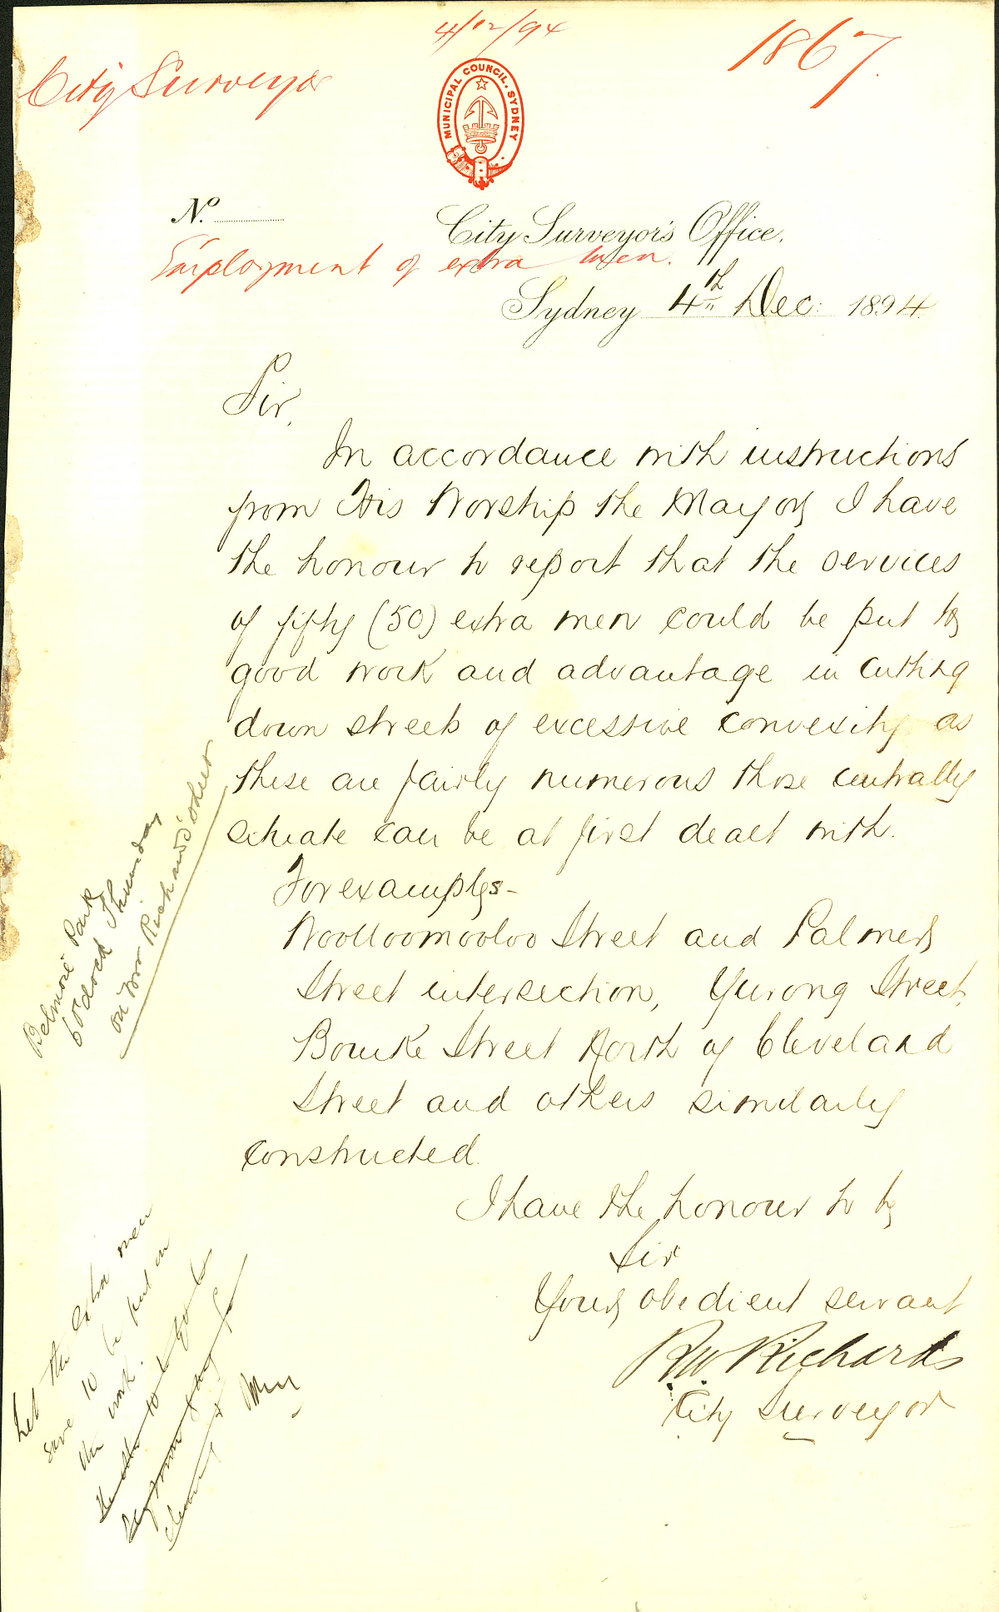 4/12/94
1867.
City Surveyor
MUNICIPAL COUNCIL. SYDNEY
No.
City Surveyor's Office,
Employment of extra men.
Sydney 4th Dec: 1894
Sir,
In accordance with instructions
from His Worship the Mayor, I have
the honour to report that the services
of fifty (50) extra men could be put to
good work and advantage in cutting
down streets of excessive convexity as
these are fairly numerous those centrally
situate can be at first dealt with.
For examples-
Woolloomooloo Street and Palmer
Street intersection, Yurong Street,
Bourke Street North of Cleveland
Street and others similarly
constructed.
I have the honour to be
Sir
Your obedient servant
R W Richards
City Surveyor
Belmore Park
6 o'clock Thursday
on Mr Richards' sheet
Let the extra men
save 10 be put on
the work.
the other 10 to go to